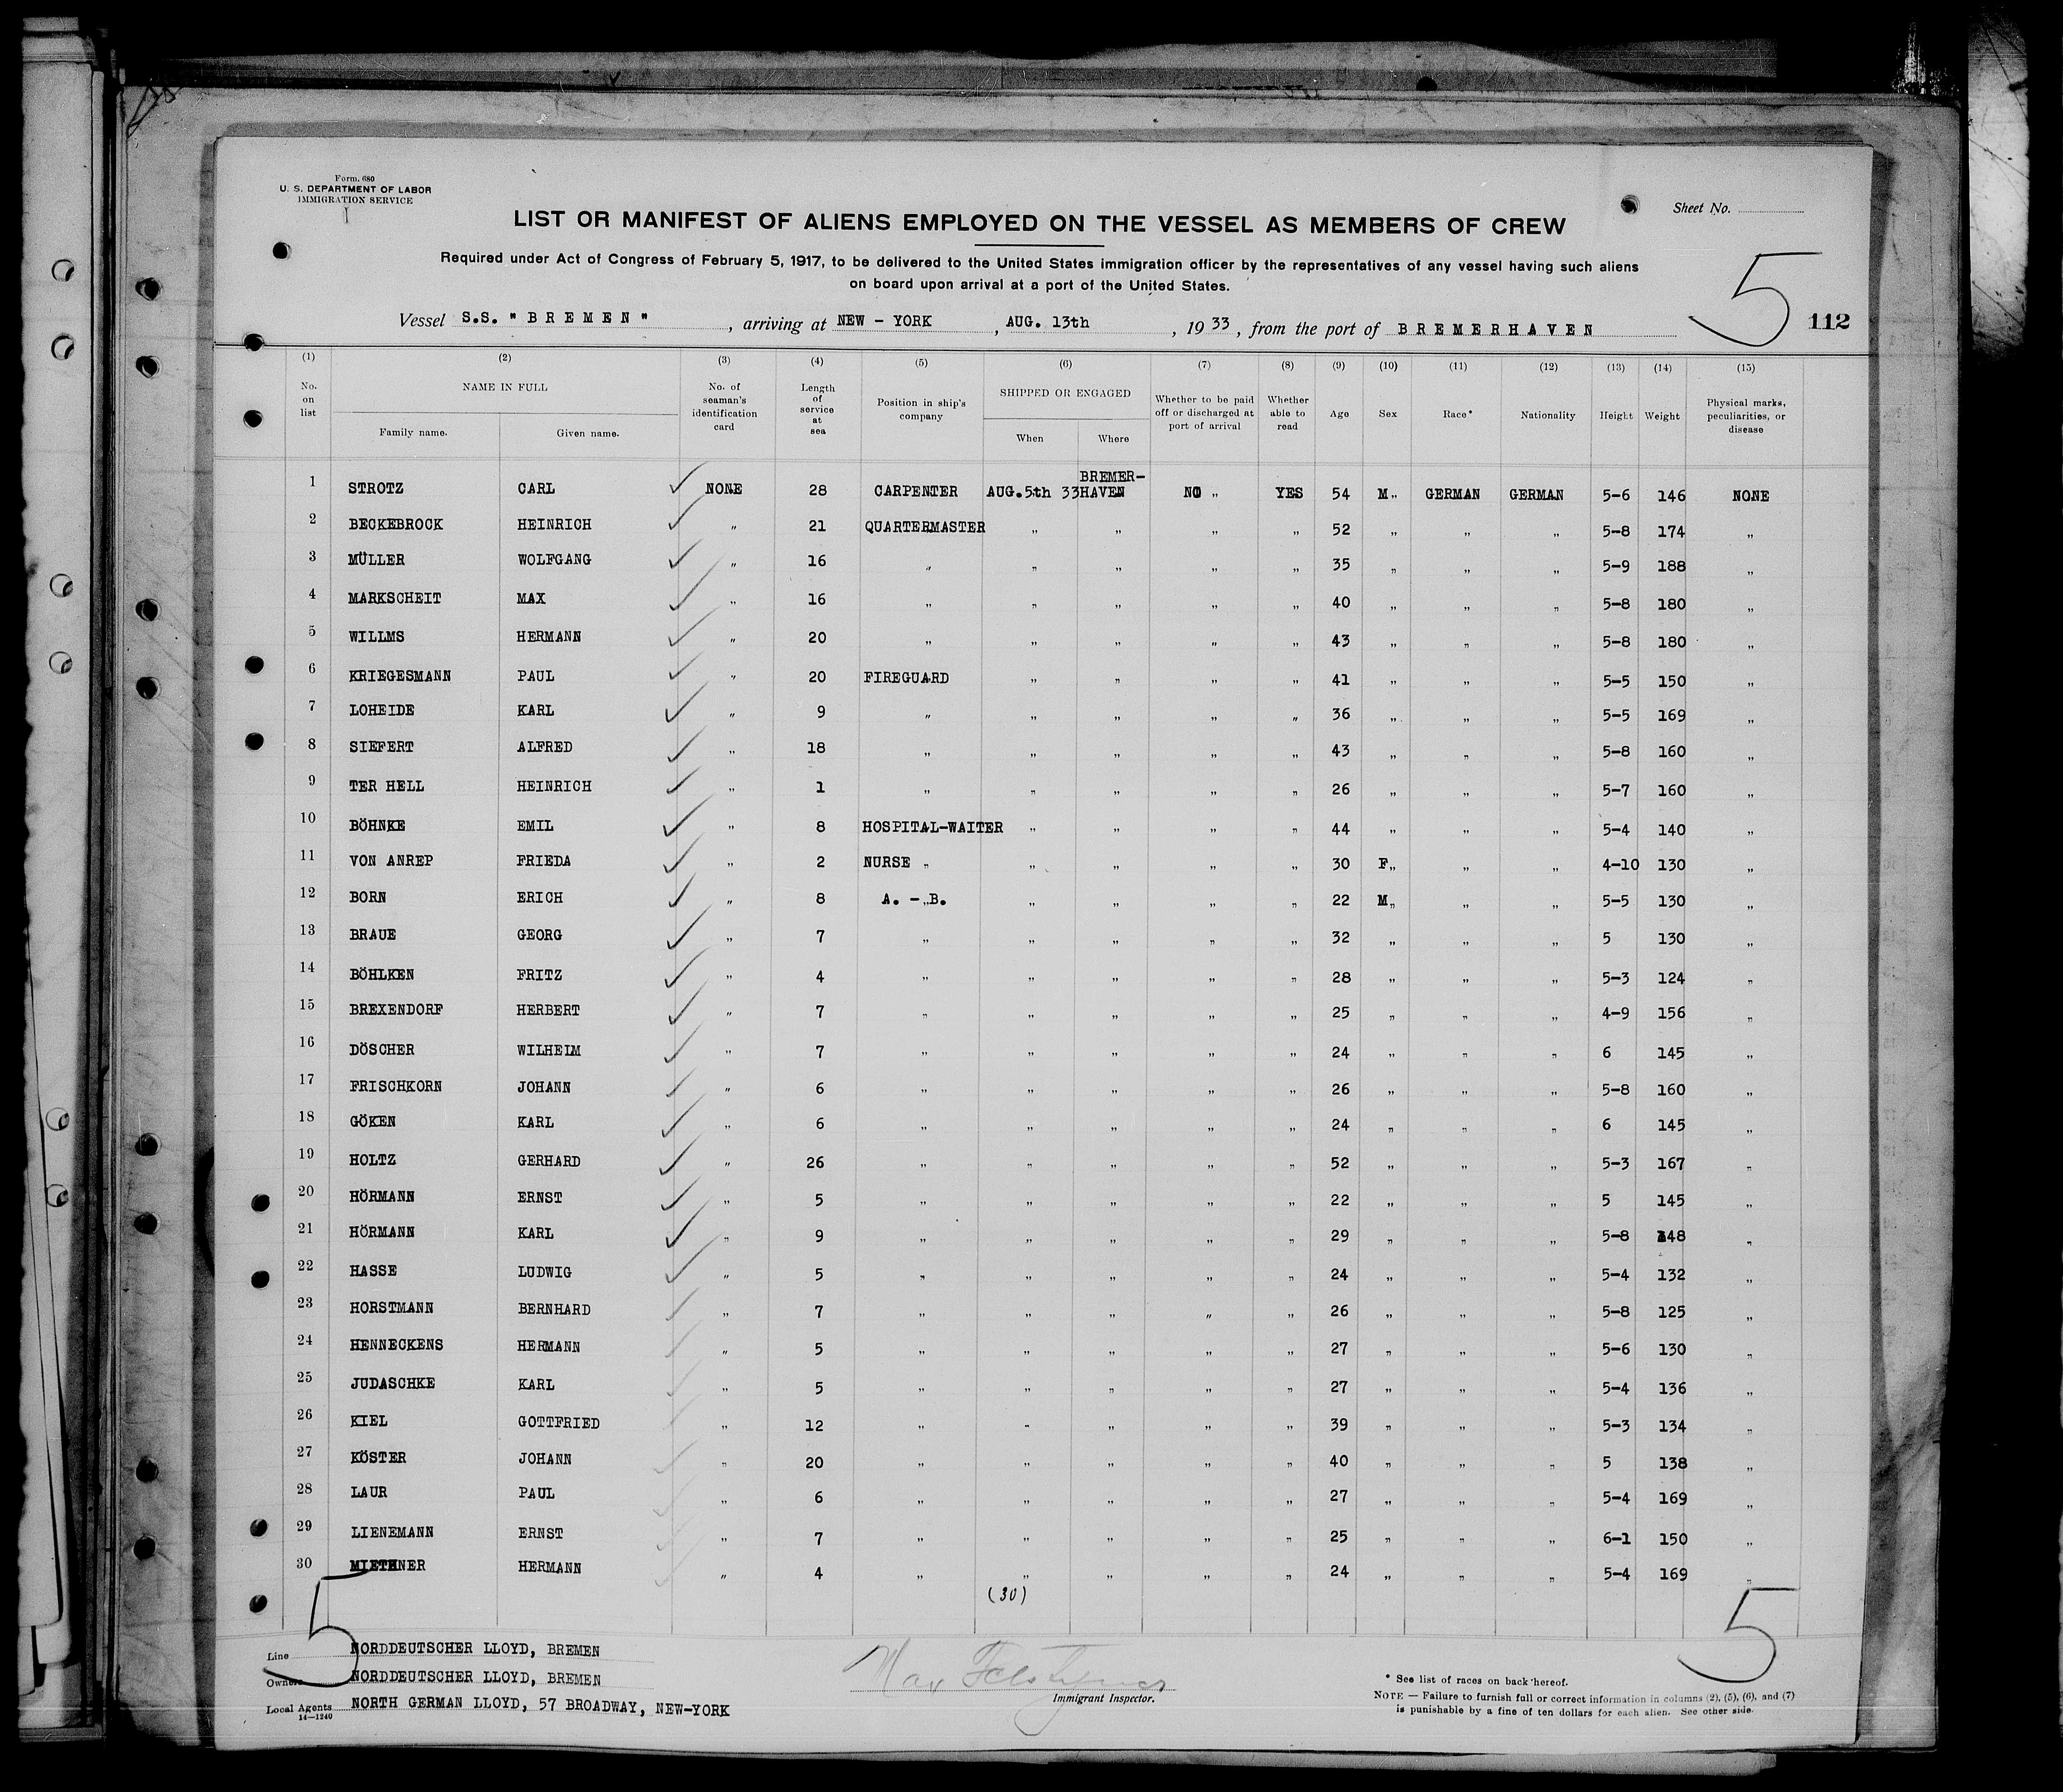 Form. 680
U. S. DEPARTMENT OF LABOR
IMMIGRATION SERVICE
Sheet No.
LIST OR MANIFEST OF ALIENS EMPLOYED ON THE VESSEL AS MEMBERS OF CREW
Required under Act of Congress of February 5, 1917, to be delivered to the United States immigration officer by the representatives of any vessel having such aliens
on board upon arrival at a port of the United States.
5
Vessel S.S. " B R E M E N " , arriving at NEW - YORK , AUG. 13th , 19 33 , from the port of B R E M E R H A V E N 112
(1) (2) (3) (4) (5) (6) (7) (8) (9) (10) (11) (12) (13) (14) (15)
No. on list NAME IN FULL Family name. Given name. No. of seaman's identification card Length of service at sea Position in ship's company SHIPPED OR ENGAGED When Where Whether to be paid off or discharged at port of arrival Whether able to read Age Sex Race* Nationality Height Weight Physical marks, peculiarities, or disease
1 STROTZ CARL NONE 28 CARPENTER AUG.5th 33 BREMER-HAVEN NO „ YES 54 M„ GERMAN GERMAN 5-6 146 NONE
2 BECKEBROCK HEINRICH „ 21 QUARTERMASTER „ „ „ „ 52 „ „ „ 5-8 174 „
3 MÜLLER WOLFGANG „ 16 „ „ „ „ „ 35 „ „ „ 5-9 188 „
4 MARKSCHEIT MAX „ 16 „ „ „ „ „ 40 „ „ „ 5-8 180 „
5 WILLMS HERMANN „ 20 „ „ „ „ „ 43 „ „ „ 5-8 180 „
6 KRIEGESMANN PAUL „ 20 FIREGUARD „ „ „ „ 41 „ „ „ 5-5 150 „
7 LOHEIDE KARL „ 9 „ „ „ „ „ 36 „ „ „ 5-5 169 „
8 SIEFERT ALFRED „ 18 „ „ „ „ „ 43 „ „ „ 5-8 160 „
9 TER HELL HEINRICH „ 1 „ „ „ „ „ 26 „ „ „ 5-7 160 „
10 BÖHNKE EMIL „ 8 HOSPITAL-WAITER „ „ „ „ 44 „ „ „ 5-4 140 „
11 VON ANREP FRIEDA „ 2 NURSE „ „ „ „ „ 30 F„ „ „ 4-10 130 „
12 BORN ERICH „ 8 A. -„B. „ „ „ „ 22 M„ „ „ 5-5 130 „
13 BRAUE GEORG „ 7 „ „ „ „ „ 32 „ „ „ 5 130 „
14 BÖHLKEN FRITZ „ 4 „ „ „ „ „ 28 „ „ „ 5-3 124 „
15 BREXENDORF HERBERT „ 7 „ „ „ „ „ 25 „ „ „ 4-9 156 „
16 DÖSCHER WILHELM „ 7 „ „ „ „ „ 24 „ „ „ 6 145 „
17 FRISCHKORN JOHANN „ 6 „ „ „ „ „ 26 „ „ „ 5-8 160 „
18 GÖKEN KARL „ 6 „ „ „ „ „ 24 „ „ „ 6 145 „
19 HOLTZ GERHARD „ 26 „ „ „ „ „ 52 „ „ „ 5-3 167 „
20 HÖRMANN ERNST „ 5 „ „ „ „ „ 22 „ „ „ 5 145 „
21 HÖRMANN KARL „ 9 „ „ „ „ „ 29 „ „ „ 5-8 148 „
22 HASSE LUDWIG „ 5 „ „ „ „ „ 24 „ „ „ 5-4 132 „
23 HORSTMANN BERNHARD „ 7 „ „ „ „ „ 26 „ „ „ 5-8 125 „
24 HENNECKENS HERMANN „ 5 „ „ „ „ „ 27 „ „ „ 5-6 130 „
25 JUDASCHKE KARL „ 5 „ „ „ „ „ 27 „ „ „ 5-4 136 „
26 KIEL GOTTFRIED „ 12 „ „ „ „ „ 39 „ „ „ 5-3 134 „
27 KÖSTER JOHANN „ 20 „ „ „ „ „ 40 „ „ „ 5 138 „
28 LAUR PAUL „ 6 „ „ „ „ „ 27 „ „ „ 5-4 169 „
29 LIENEMANN ERNST „ 7 „ „ „ „ „ 25 „ „ „ 6-1 150 „
30 MIETHNER HERMANN „ 4 „ „ „ „ „ 24 „ „ „ 5-4 169 „
(30)
5 5
Line NORDDEUTSCHER LLOYD, BREMEN
Owners NORDDEUTSCHER LLOYD, BREMEN
Local Agents NORTH GERMAN LLOYD, 57 BROADWAY, NEW-YORK
14—1240
Max
Immigrant Inspector.
* See list of races on back hereof.
NOTE — Failure to furnish full or correct information in columns (2), (5), (6), and (7)
is punishable by a fine of ten dollars for each alien. See other side.